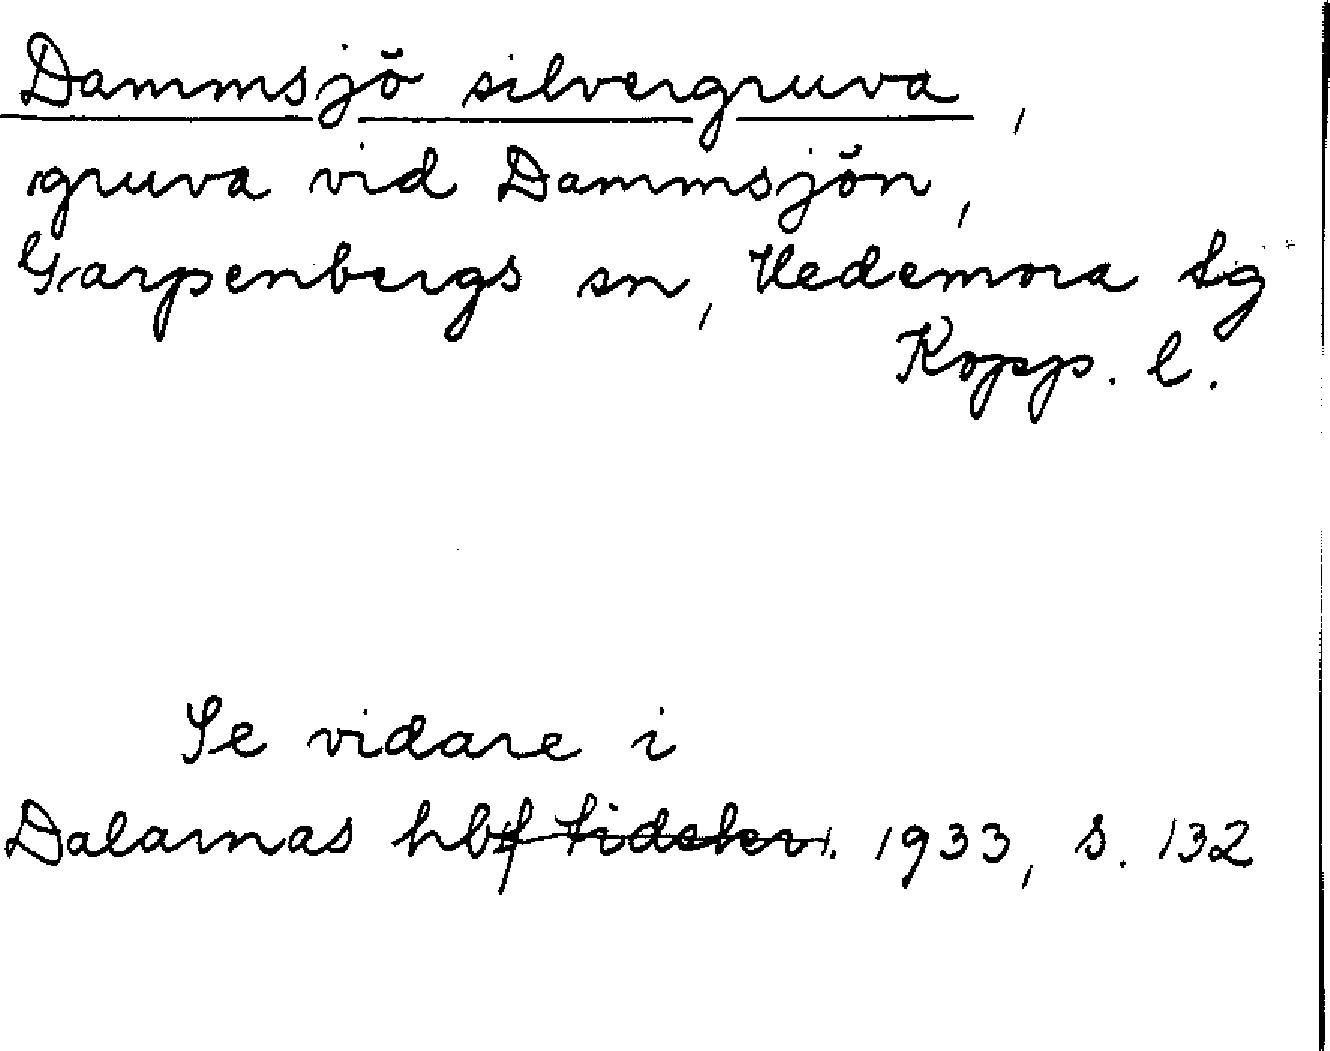 Dammsjö silvergruva,
gruva vid Dammsjön,
Garpenbergs sn, Hedemora tg
Kopp. l.
Se vidare i
Dalarnas hbf tidskr. 1933, s. 132